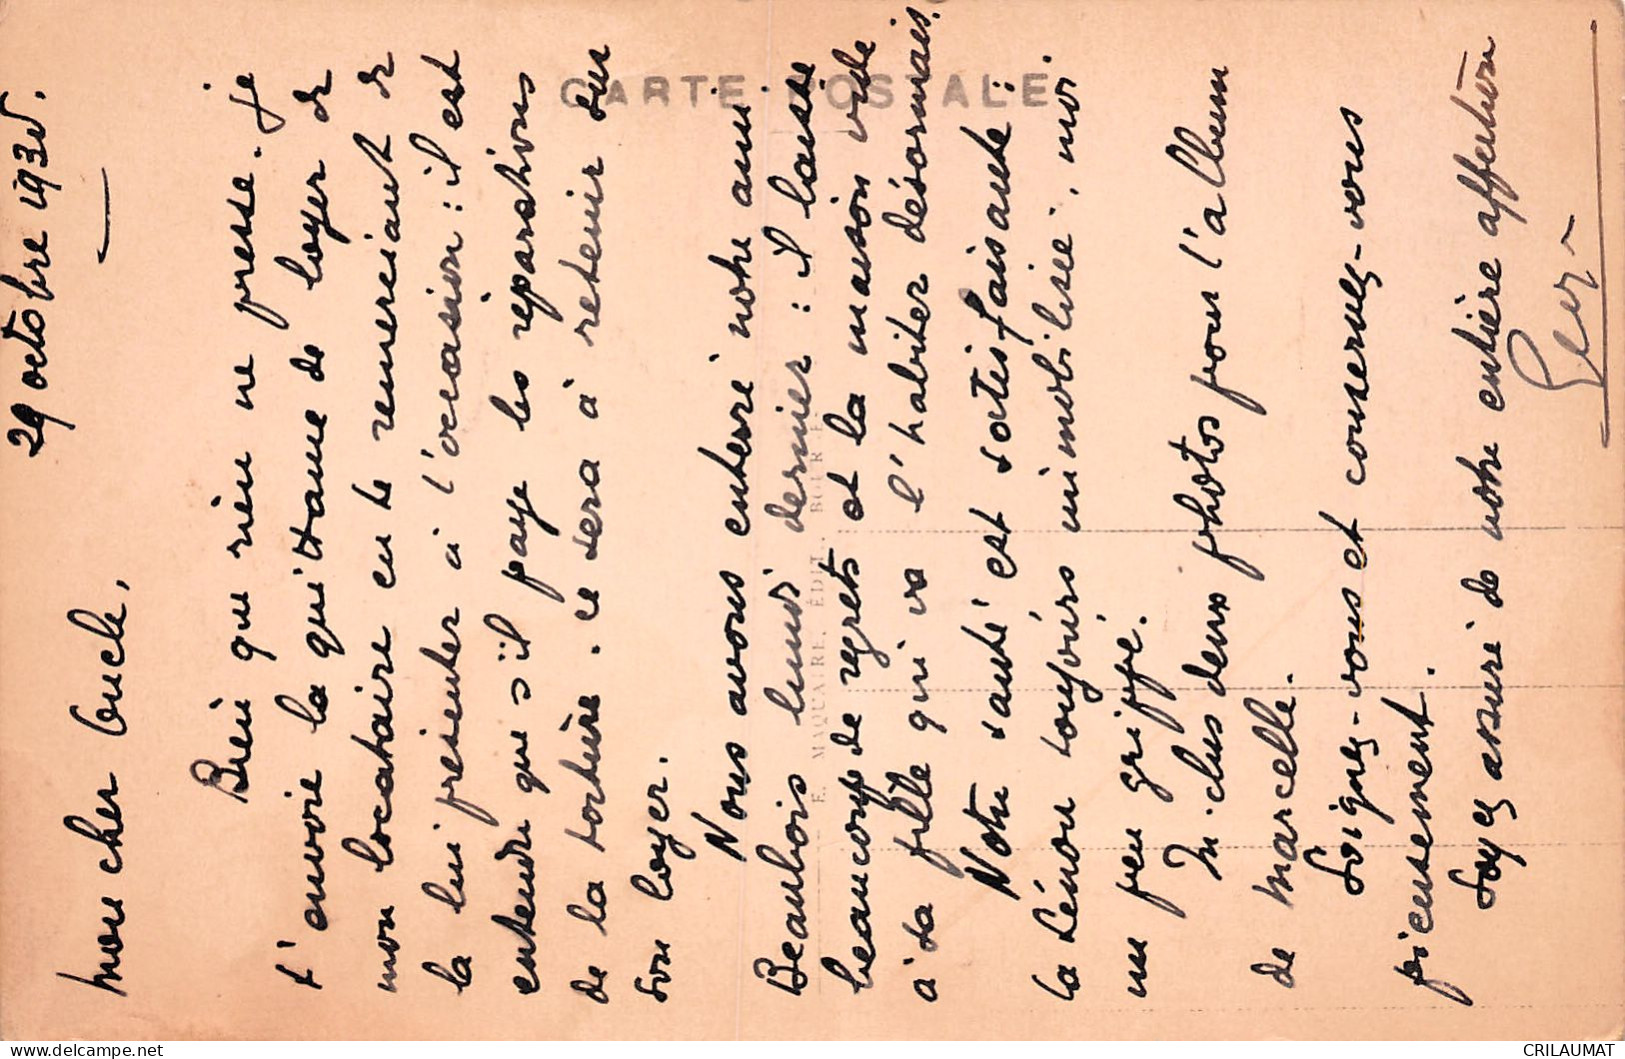 29 octobre 193
mon cher Oncle,
Bien que rien ne presse. Je
t'envoie la quittance de loyer de
mon locataire en te remerciant de
la lui présenter à l'occasion : il est
entendu que s'il paye les réparations
de la toiture. ce sera à retenir sur
son loyer.
Nous avons enterré notre ami
Beaubois lundi dernier : il laisse
beaucoup de regrets et la maison vide
à sa fille qui va l'habiter désormais.
Notre santé est satisfaisante :
la immobilisée, moi
un peu grippé.
Inclus deux photos pour l'album
de Marcelle.
Soignez-vous et conservez-vous
pieusement.
Soyez assuré de notre entière affection
CARTE POSTALE
E. MAQUAIRE, ÉDIT.
CRILAUMAT